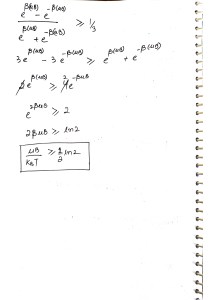 e^{β(μB)} - e^{-β(μB)} / e^{β(μB)} + e^{-β(μB)} ≥ 1/3
3e^{β(μB)} - 3e^{-β(μB)} ≥ e^{β(μB)} + e^{-β(μB)}
2e^{β(μB)} ≥ 4e^{-βμB}
e^{2βμB} ≥ 2
2βμB ≥ ln2
μB / k_BT ≥ 1/2 ln2